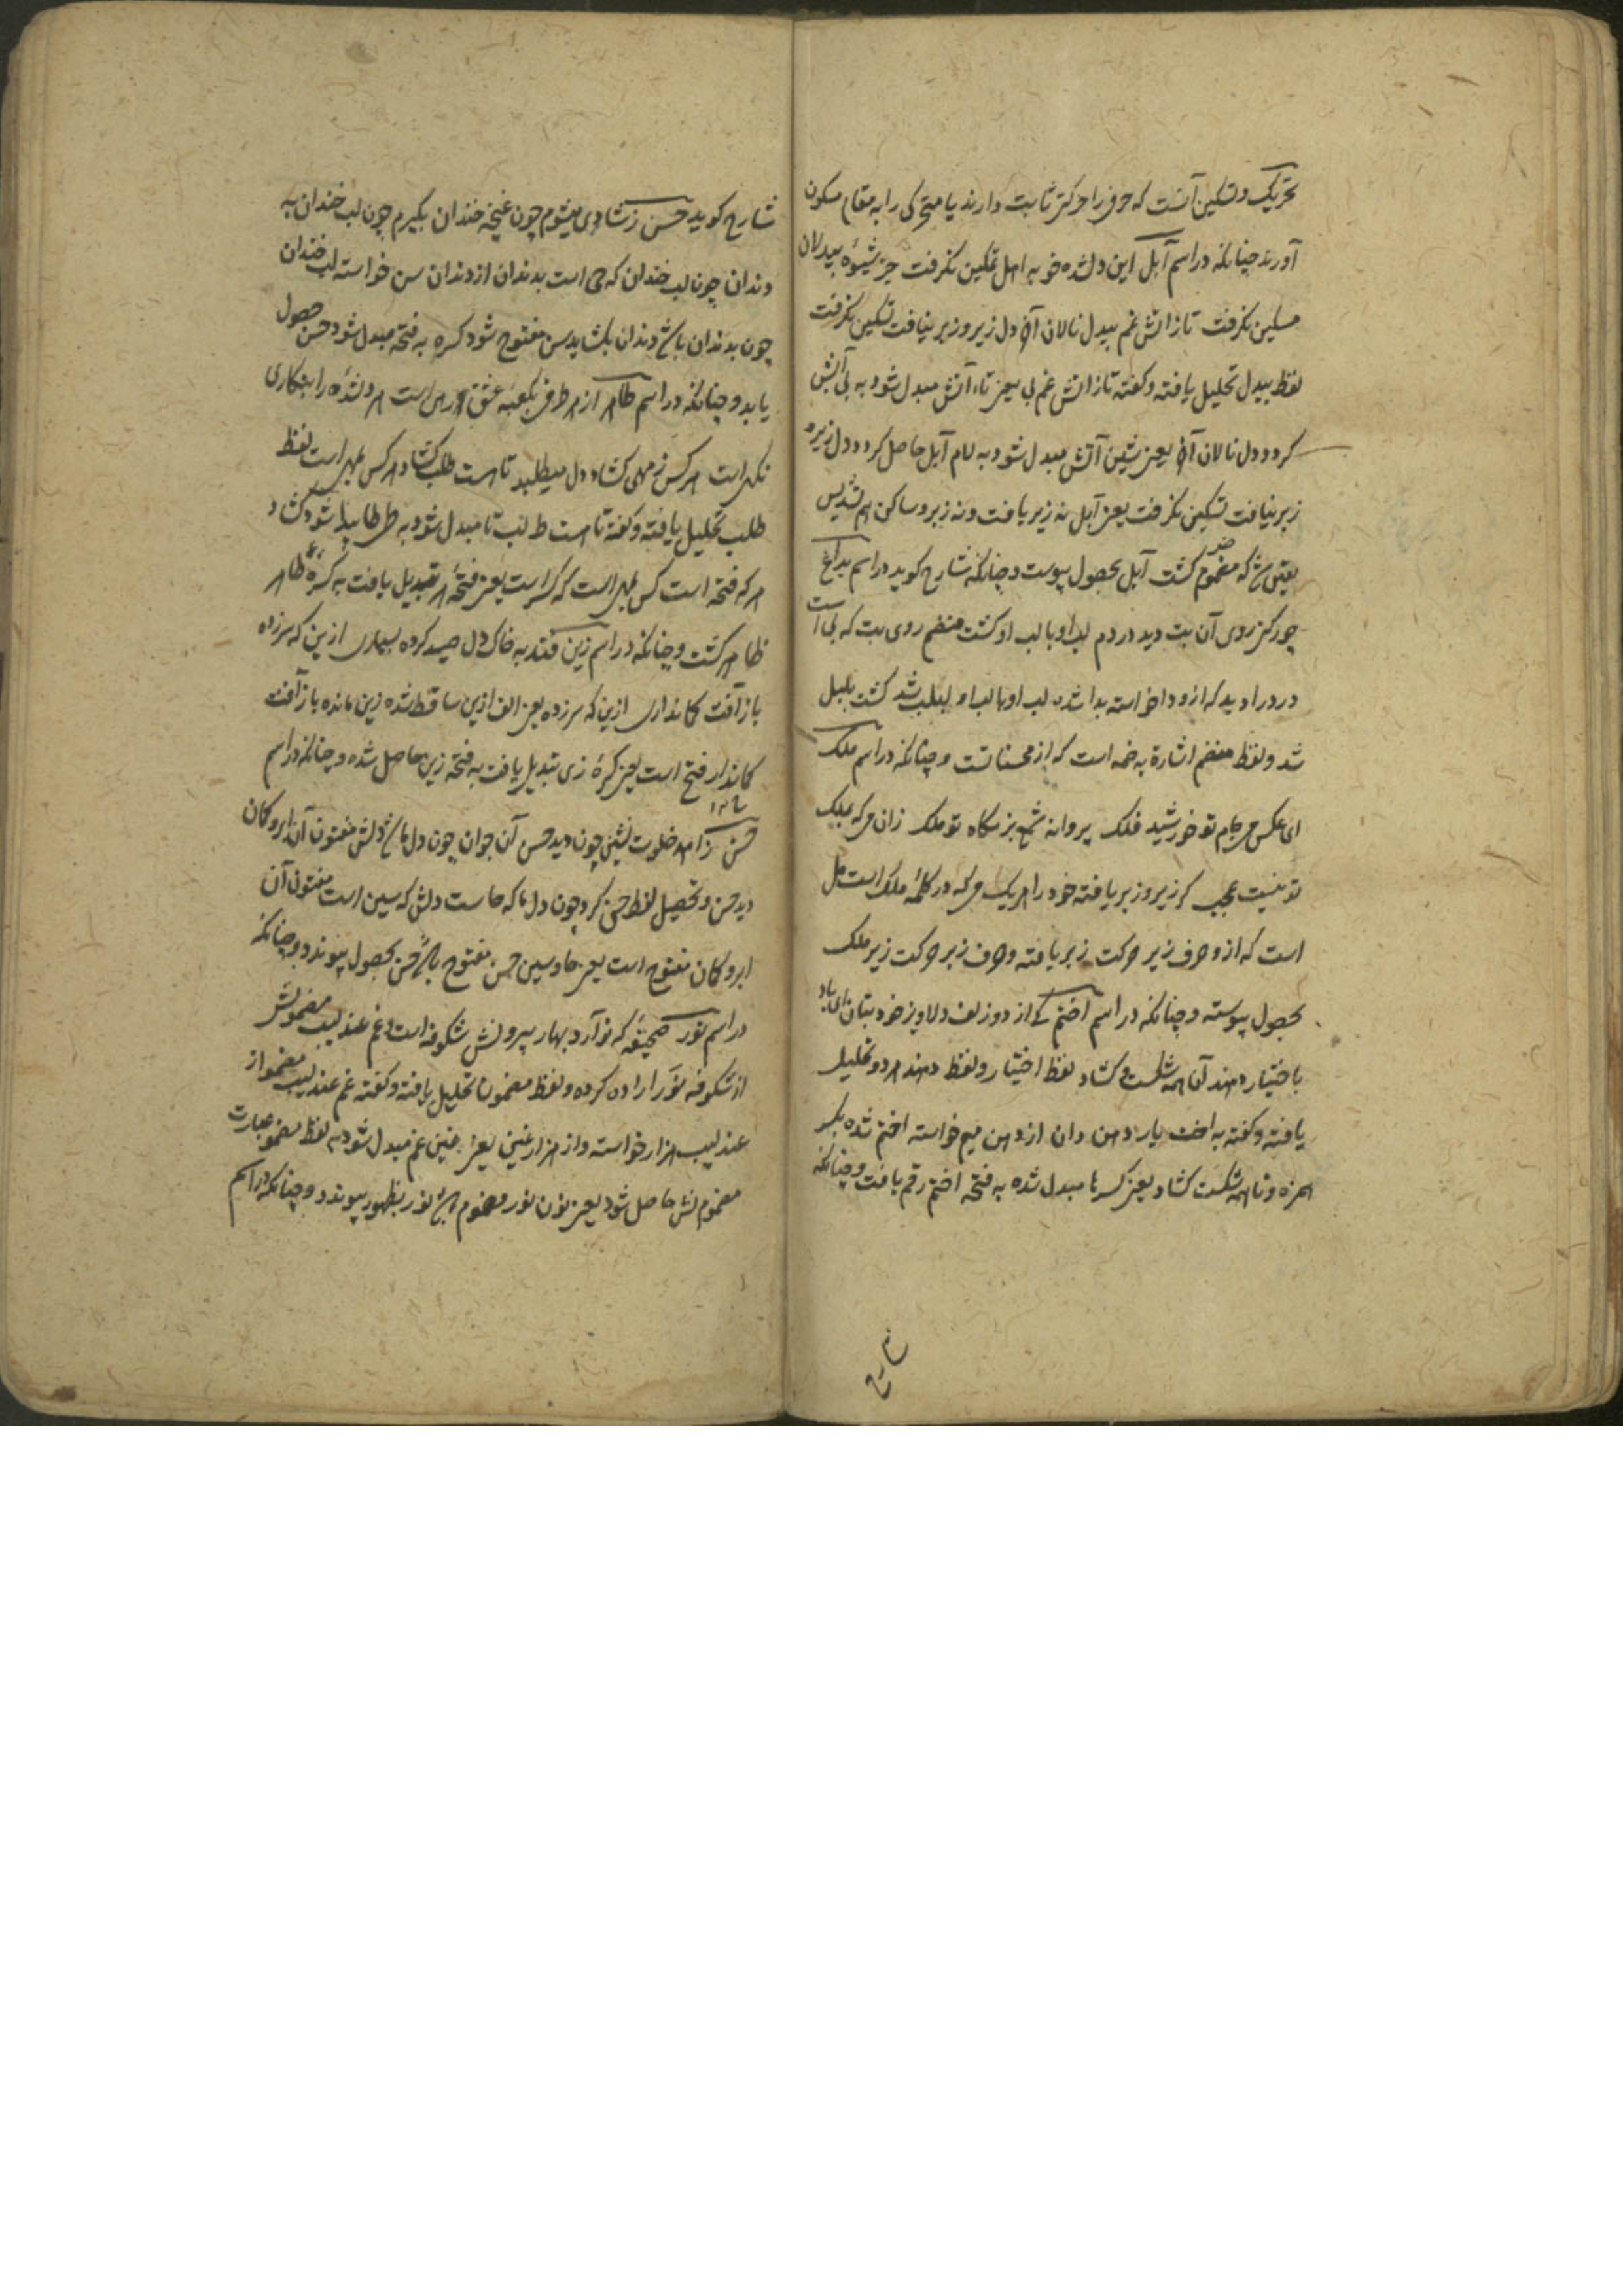 تحریک و تسکین آنست که حرفی را حرکتی ثابت دارند یا متحرکی را به مقام سکون
آورند چنانکه در اسم آبل این دلشده خو به اهل تمکین نگرفت جز شیوه بیدلان
مسکین نگرفت تا ز آتش غم بیدل نالان آخر دل زیر و زبر نیافت تسکین نگرفت
لفظ بیدل تحلیل یافته و کفته تا ز آتش غم بی یعنی تاء آتش مبدل شود به بی آبش
کردد و دل نالان آخر یعنی شین آتش مبدل شود به لام آبل حاصل کردد و دل زیر و
زبر نیافت تسکین نگرفت یعنی آبل نه زیر یافت و نه زبر و ساکن هم نشد پس
یقین که مضموم کشت آبل بحصول پیوست و چنانکه شارح کوید در اسم
روی آن بت دید در دم لب او با لب او کشت منضم روی بت که بی است
در دور او دید که ازو دا خواسته بدا شد لب او با لب او بلبلب شد کشت بلبل
شد و لفظ منضم اشارة به ضمه است که از محسناتست و چنانکه در اسم ملک
ای عکس می جام تو خورشید فلک پروانه شمع بزمکاه تو ملک زان می که ملک
تو نیست عجب کر زیر و زبر یافته خود را هر یک می که در کلمه ملک است مل
است که ازو حرف زیر حرکت زبر یافته و حرف زبر حرکت زیر ملک
بحصول پیوسته و چنانکه در اسم اختم کی از دو زلف دلاویز خود بتان ای یار
باختیار دهند آنا همه شکست و کشاد لفظ اختیار و لفظ دهند هر دو تحلیل
یافته و کفته به اخت یار دهن دان از دهن میم خواسته اختم شده بکسر
همزه و تا همه شکست کشاد یعنی کسرها مبدل شده به فتحه اختم رقم یافت و چنانکه
شارح کوید حسن ز شادی میشوم چون غنچه خندان بکیرم چون لب خندان به
دندان چون لب خندان که ح است بدندان از دندان سن خواسته لب خندان
چون بدندان دندان بکشاید پس مفتوح شود کسره به فتحه مبدل شود حسن حصول
یابد و چنانکه در اسم طاهر از هر طرفی بکعبه عشق است هر دلشده را بنکاری
نکهی است هر کس ز مهی کشاد دل میطلبد تا هست طلب کشاد هر کس است لفظ
طلب تحلیل یافته و کفته تا هست ط لب تا مبدل شود به ط طا پیدا شود کشاد
هر که فتحه است است که کسر است یعنی فتحه هر تبدیل یافت به کسره طاهر
ظاهر کشت و چنانکه در اسم زین فتد به خاک دل صید کرده ازین که سر زده
باز آفت کمانداری ازین که سر زده یعنی الف ازین ساقط شده زین مانده باز آفت
کماندار فتح است یعنی کسره زی تبدیل یافت به فتحه زین حاصل شده و چنانکه در اسم
حسن زاهد خلوت نشین چون دید حسن آن جوان چون دل ما دلش مفتون آن ابرو کمان
دید حسن و تحصیل لفظ حسن کرد چون دل ما که حاست دلش که سین است مفتون آن
ابرو کمان مفتوح است یعنی حا و سین حسن مفتوح حسن بحصول پیوندد و چنانکه
در اسم نور صحیفه که نو آرد بهار بیرونش شکوفه است و غم عندلیب مضمونش
از شکوفه نور اراده کرده و لفظ مضمونش تحلیل یافته و کفته غم عندلیب مضمو از
عندلیب هزار خواسته و از هزار غین یعنی غین غم مبدل شود به لفظ مضمو عبارت
مضموم نش حاصل شود یعنی نون نور مضموم نور بظهور پیوندد و چنانکه در اسم